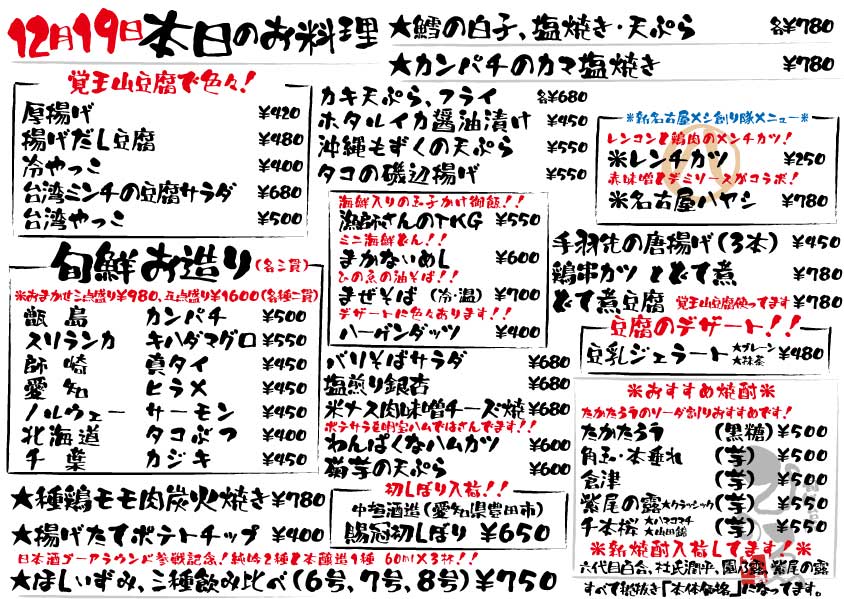 12月19日本日のお料理
★鱈の白子、塩焼き・天ぷら 各¥780
★カンパチのカマ塩焼き ¥780
覚王山豆腐で色々!
厚揚げ ¥420
揚げだし豆腐 ¥480
冷やっこ ¥400
台湾ミンチの豆腐サラダ ¥680
台湾やっこ ¥500
旬鮮お造り(各三貫)
※おまかせ三点盛り¥980、五点盛り¥1600(各種二貫)
甑島 カンパチ ¥500
スリランカ キハダマグロ ¥550
師崎 真タイ ¥450
愛知 ヒラメ ¥450
ノルウェー サーモン ¥450
北海道 タコぶつ ¥400
千葉 カジキ ¥450
★種鶏モモ肉炭火焼き ¥780
★揚げたてポテトチップ ¥400
日本酒ゴーアラウンド参戦記念!純吟2種と本醸造1種 60ml×3杯!!
★ほしいずみ、三種飲み比べ(6号、7号、8号)¥750
カキ天ぷら、フライ 各¥680
ホタルイカ醤油漬け ¥450
沖縄もずくの天ぷら ¥550
タコの磯辺揚げ ¥550
海鮮入りの玉子かけ御飯!!
漁師さんのTKG ¥550
ミニ海鮮どん!!
まかないめし ¥600
ひの魚の油そば!!
まぜそば (冷・温) ¥700
デザートに色々あります!!
ハーゲンダッツ ¥400
バリそばサラダ ¥680
塩煎り銀杏 ¥680
米ナス肉味噌チーズ焼 ¥680
ポテサラを明宝ハムではさんでます!!
わんぱくなハムカツ ¥600
菊芋の天ぷら ¥600
初しぼり入荷!!
中垣酒造(愛知県豊田市)
賜冠初しぼり ¥650
※新名古屋メシ創り隊メニュー※
レンコンと鶏肉のメンチカツ!
※レンチカツ ¥250
赤味噌とデミソースがコラボ!
※名古屋ハヤシ ¥780
手羽先の唐揚げ(3本) ¥450
鶏串カツ どて煮 ¥780
どて煮豆腐 覚王山豆腐使ってます ¥780
豆腐のデザート!!
豆乳ジェラート ★プレーン ★抹茶 ¥480
※おすすめ焼酎※
たかたろうのソーダ割りおすすめです!
たかたろう (黒糖) ¥500
角玉・本垂れ (芋) ¥500
倉津 (芋) ¥500
紫尾の露★クラッシック (芋) ¥550
千本桜 ★ハマコマチ ★山田錦 (芋) ¥550
※新焼酎入荷してます!※
六代目百合、杜氏潤平、園乃露、紫尾の露
すべて税抜き『本体価格』になってます。